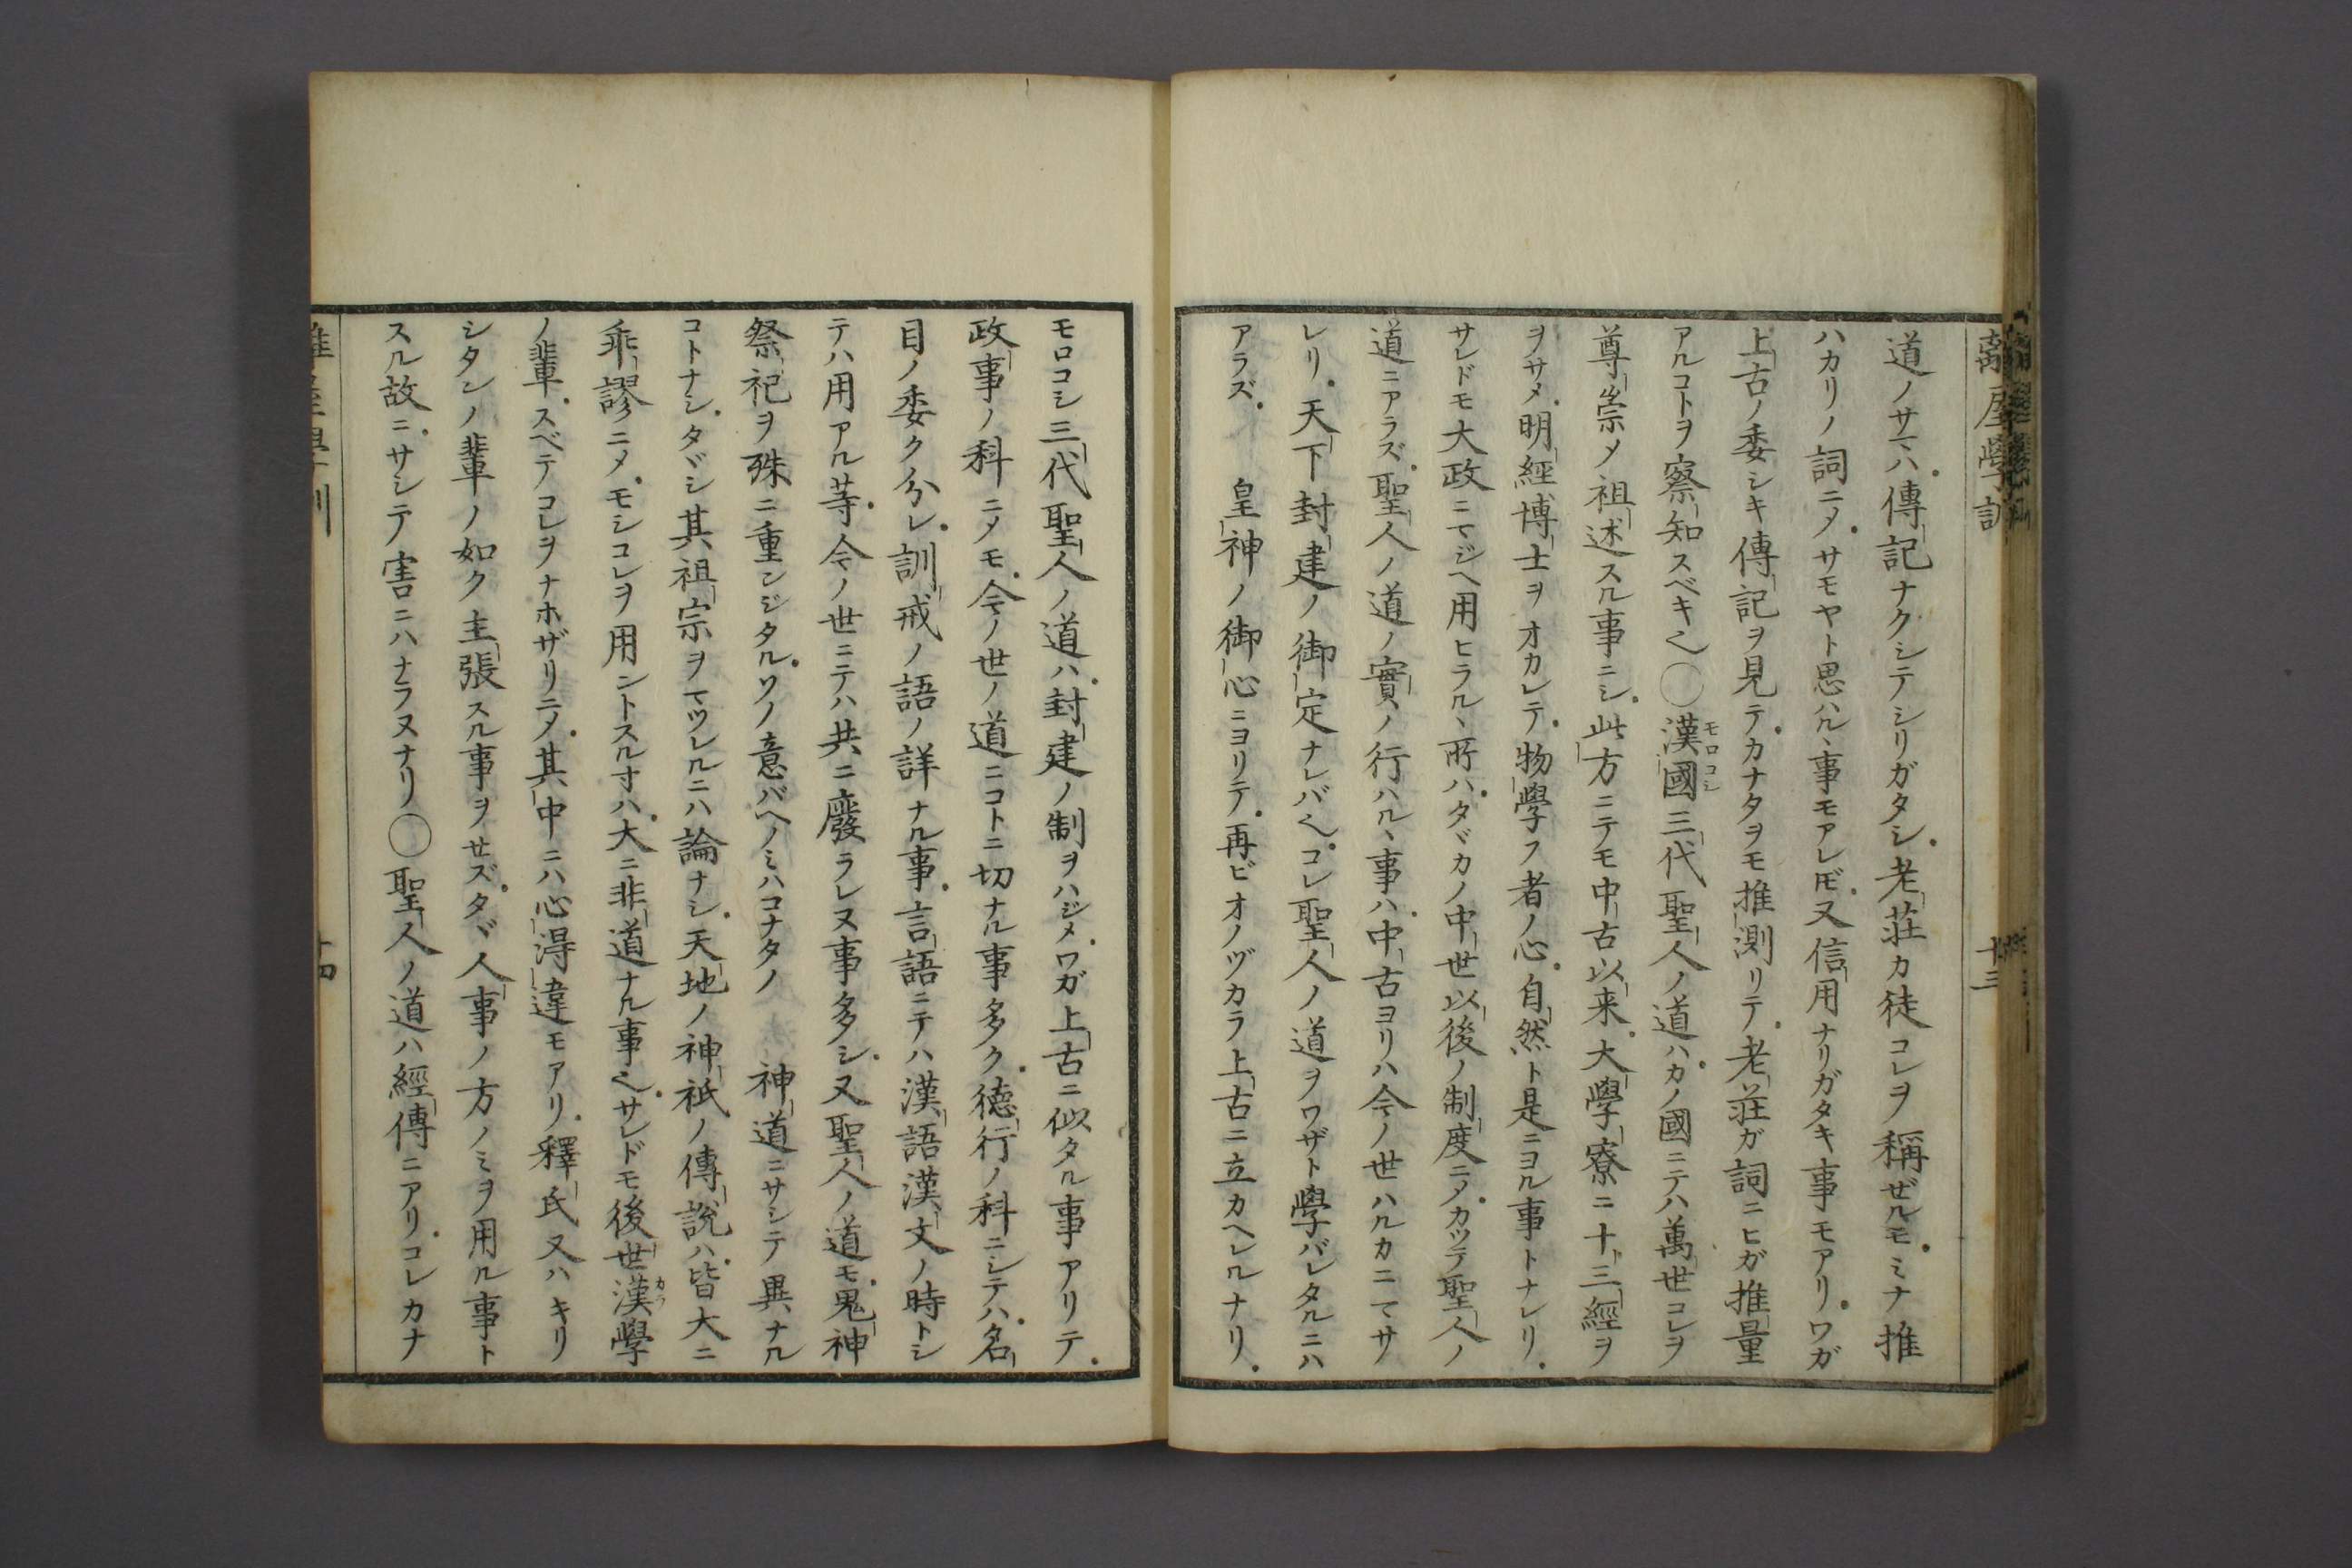 離屋學訓
十三
道ノサマハ傳記ナクシテシリガタシ老莊カ徒コレヲ稱ゼルモミナ推
ハカリノ詞ニメサモヤト思ハルヽ事モアレ𪜈又信用ナリガタキ事モアリワガ
上古ノ委シキ傳記ヲ見テカナタヲモ推測リテ老莊ガ詞ニヒガ推量
アルコトヲ察知スベキ也〇漢國三代聖人ノ道ハカノ國ニテハ萬世コレヲ
モロコシ
尊崇メ祖述スル事ニシ此方ニテモ中古以来大學寮ニ十三經ヲ
ヲサメ明經博士ヲオカレテ物學フ者ノ心自然ト是ニヨル事トナレリ
サレドモ大政ニマジヘ用ヒラルヽ所ハタヾカノ中世以後ノ制度ニメカツテ聖人ノ
道ニアラズ聖人ノ道ノ實ノ行ハルヽ事ハ中古ヨリハ今ノ世ハルカニマサ
レリ天下封建ノ御定ナレバ也コレ聖人ノ道ヲワザト學バレタルニハ
アラズ 皇神ノ御心ニヨリテ再ビオノヅカラ上古ニ立カヘレルナリ
モロコシ三代聖人ノ道ハ封建ノ制ヲハジメワガ上古ニ似タル事アリテ
政事ノ科ニメモ今ノ世ノ道ニコトニ切ナル事多ク德行ノ科ニシテハ名
目ノ委ク分レ訓戒ノ語ノ詳ナル事言語ニテハ漢語漢文ノ時トシ
テハ用アル等今ノ世ニテハ共ニ廢ラレヌ事多シ又聖人ノ道モ鬼神
祭祀ヲ殊ニ重ンジタルソノ意バヘノミハコナタノ 神道ニサシテ異ナル
コトナシタヾシ其祖宗ヲマツレルニハ論ナシ天地ノ神祇ノ傳說ハ皆大ニ
乖謬ニメモシコレヲ用ントスル寸ハ大ニ非道ナル事也サレドモ後世漢學
カラ
ノ輩スベテコレヲナホザリニメ其中ニハ心得違モアリ釋氏又ハキリ
シタンノ輩ノ如ク主張スル事ヲせズタヾ人事ノ方ノミヲ用ル事ト
スル故ニサシテ害ニハナラヌナリ〇聖人ノ道ハ經傳ニアリコレカナ
十四